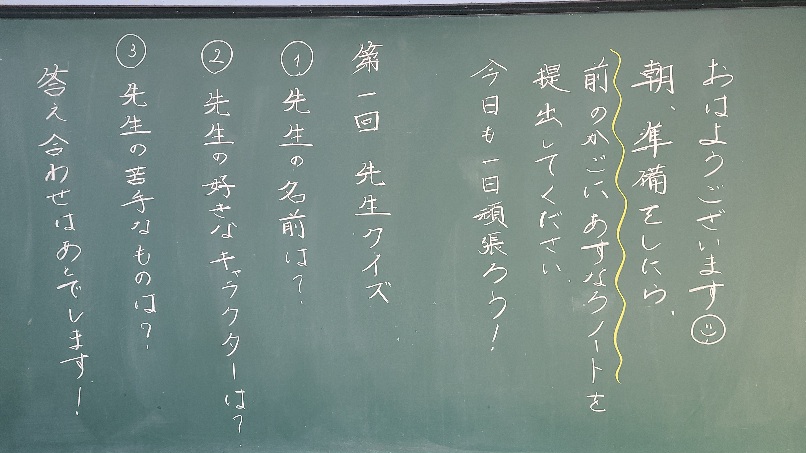 おはようございます☺
朝、準備をしたら、
前のかごに、あすなろノートを
提出してください。
今日も一日頑張ろう！
第一回 先生クイズ
① 先生の名前は？
② 先生の好きなキャラクターは？
③ 先生の苦手なものは？
答え合わせはあとでします！